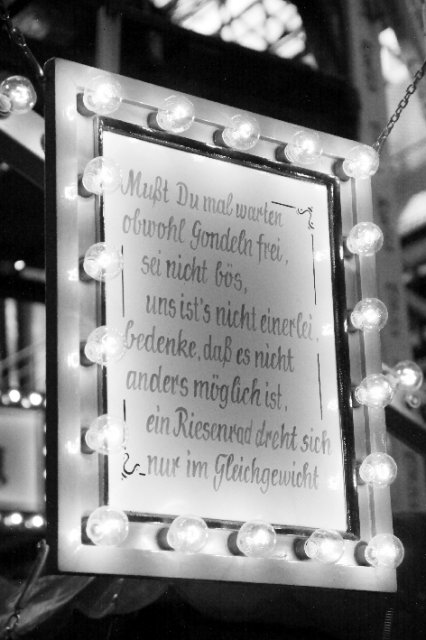 Mußt Du mal warten
obwohl Gondeln frei,
sei nicht bös,
uns ist's nicht einerlei,
bedenke, daß es nicht
anders möglich ist,
ein Riesenrad dreht sich
nur im Gleichgewicht